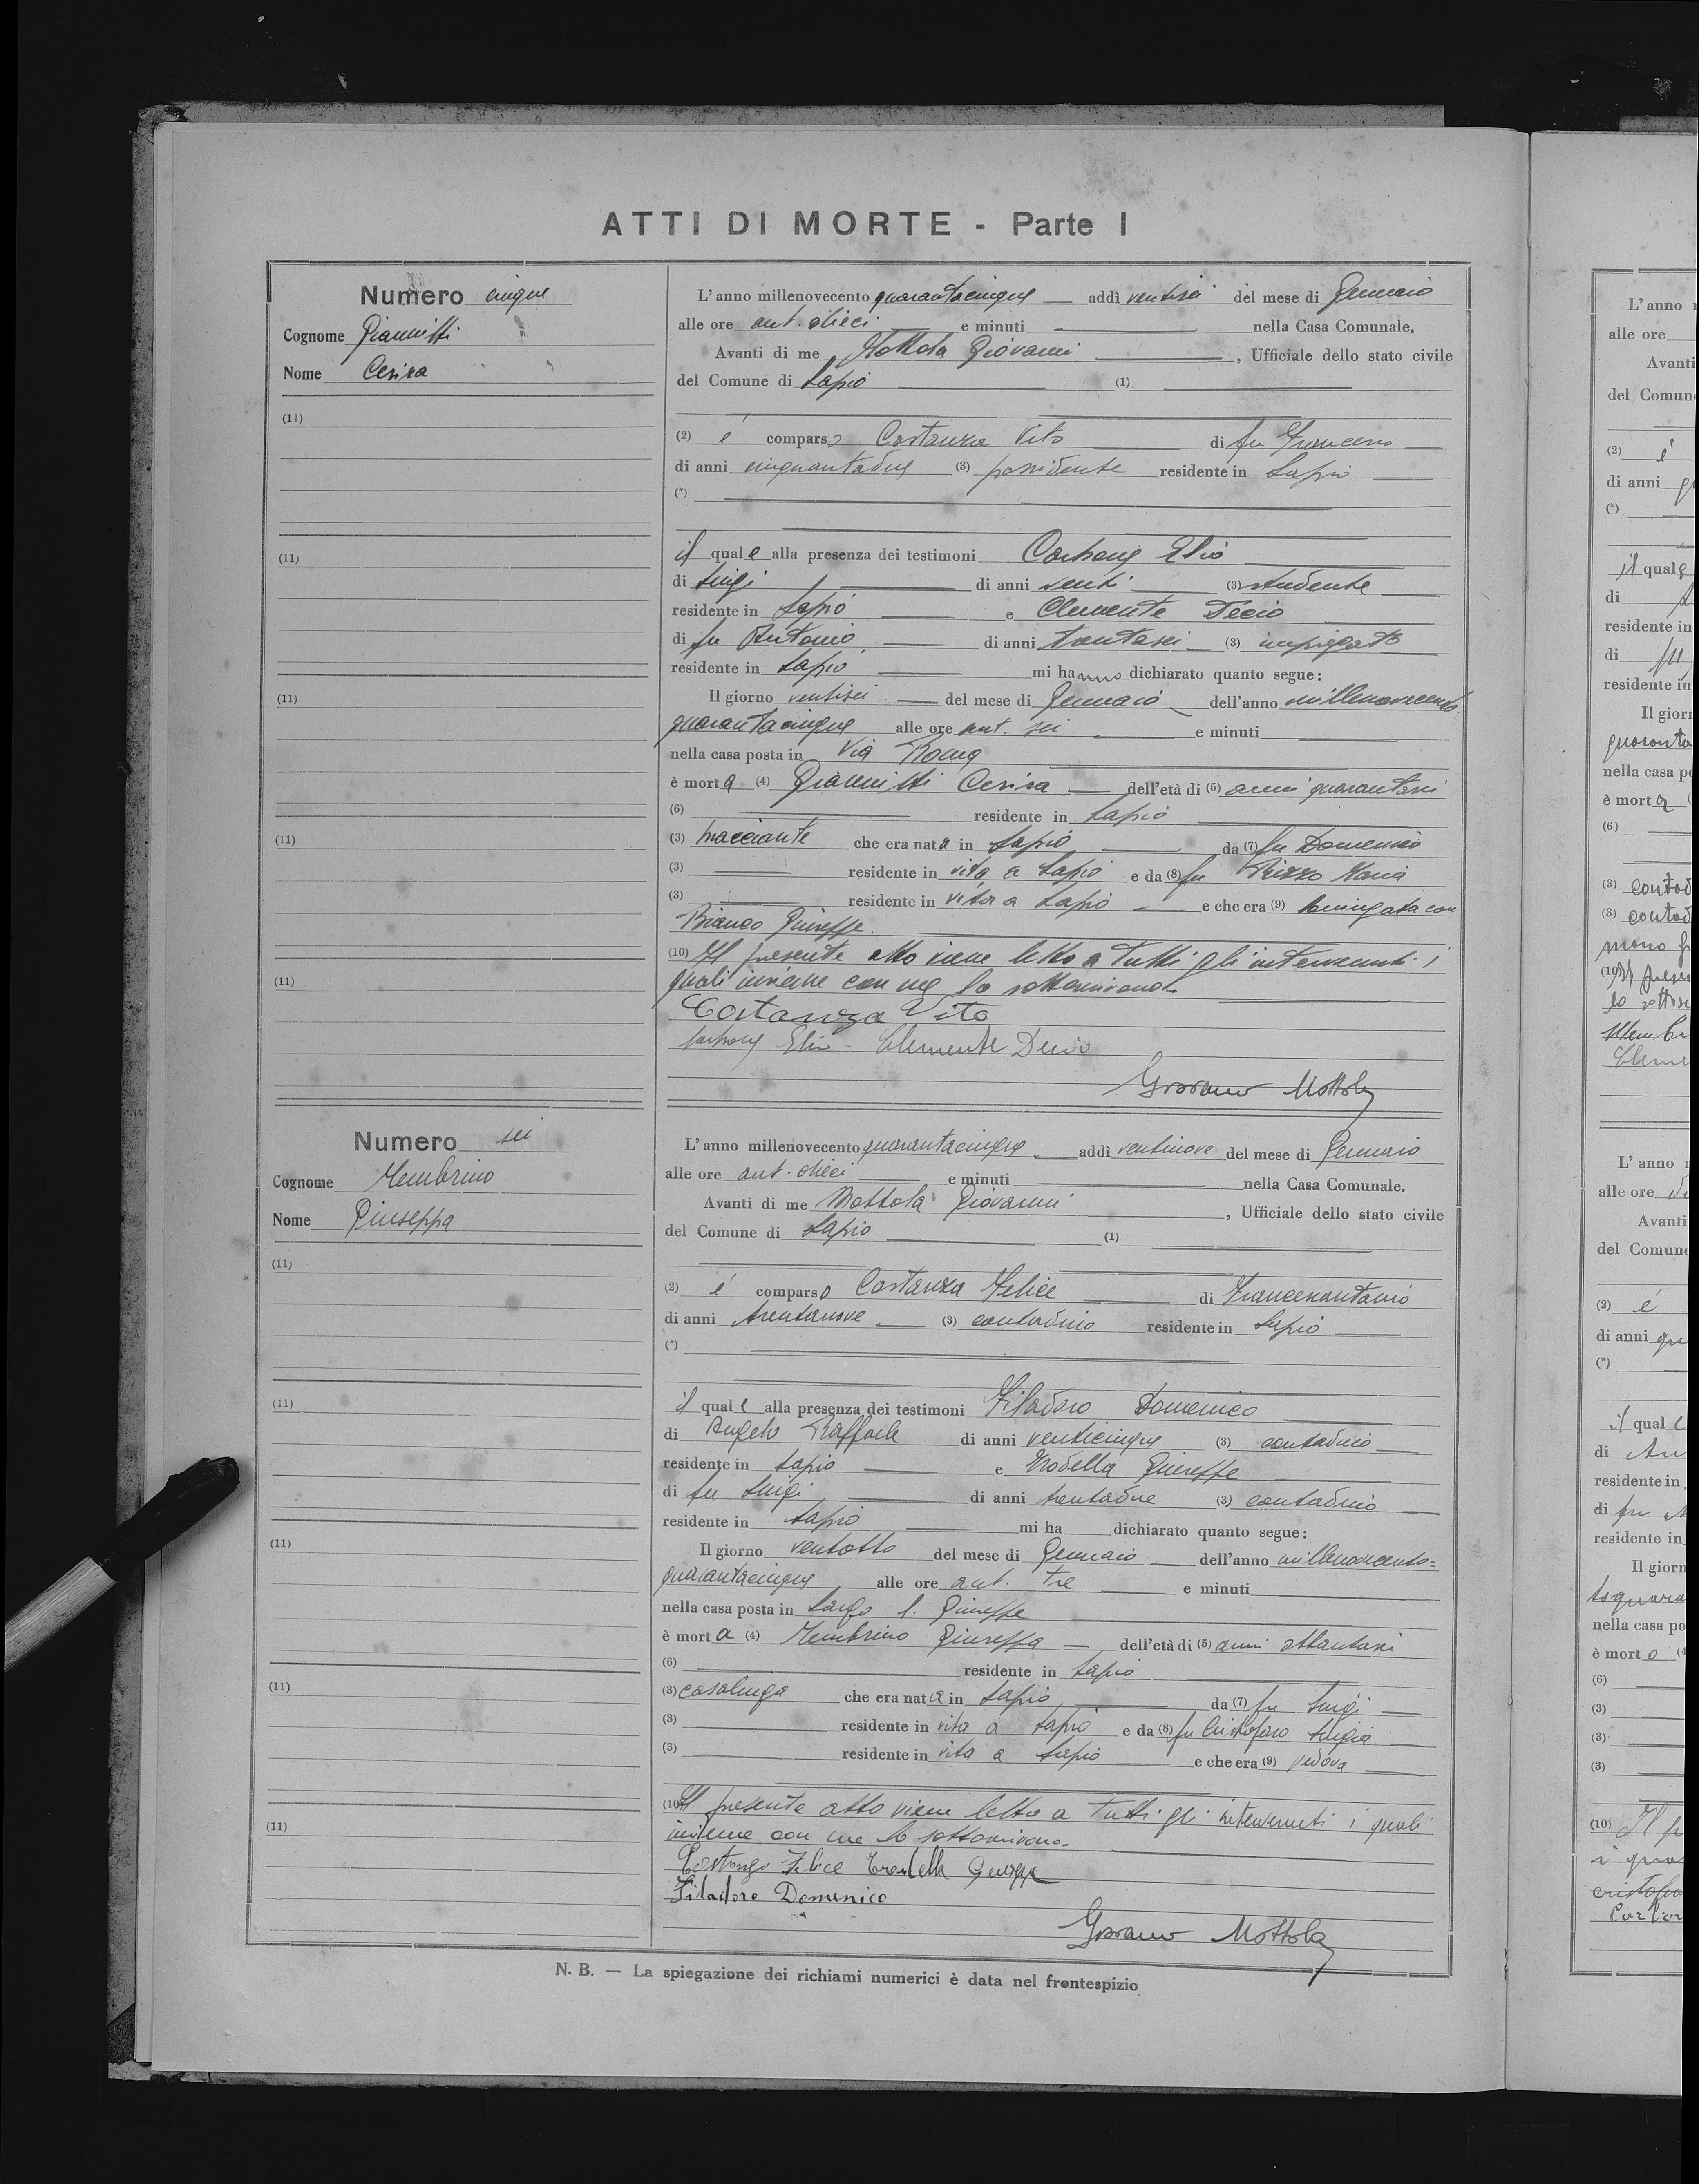 ATTI DI MORTE - Parte I
Numero cinque
Cognome Giannitti
Nome Cesira
(11)
(11)
(11)
(11)
(11)
L'anno millenovecento quarantacinque addì ventisei del mese di Gennaio
alle ore ant. dieci e minuti nella Casa Comunale.
Avanti di me Mottola Giovanni, Ufficiale dello stato civile
del Comune di Lapio (1)
(2) è comparso Costanza Vito di fu Francesco
di anni cinquantadue (3) possidente residente in Lapio
(*)
il quale alla presenza dei testimoni Carbone Elio
di Luigi di anni venti (3) studente
residente in Lapio e Clemente Decio
di fu Antonio di anni trentasei (3) impiegato
residente in Lapio mi hanno dichiarato quanto segue:
Il giorno ventisei del mese di Gennaio dell'anno millenovecento
quarantacinque alle ore ant. sei e minuti
nella casa posta in Via Roma
è morta (4) Giannitti Cesira dell'età di (5) anni quarantasei
(6) residente in Lapio
(3) bracciante che era nata in Lapio da (7) fu Domenico
(3) residente in vita a Lapio e da (8) fu Rizzo Maria
(3) residente in vita a Lapio e che era (9) coniugata con
Bianco Giuseppe.
(10) Il presente atto viene letto a tutti gli intervenuti i
quali insieme con me lo sottoscrivono.
Costanza Vito
Carbone Elio - Clemente Decio
Giovanni Mottola
Numero sei
Cognome Membrino
Nome Giuseppa
(11)
(11)
(11)
(11)
(11)
L'anno millenovecento quarantacinque addì ventinove del mese di Gennaio
alle ore ant. dieci e minuti nella Casa Comunale.
Avanti di me Mottola Giovanni, Ufficiale dello stato civile
del Comune di Lapio (1)
(2) è comparso Costanza Felice di Francescantonio
di anni trentanove (3) contadino residente in Lapio
(*)
il quale alla presenza dei testimoni Filadoro Domenico
di Angelo Raffaele di anni venticinque (3) contadino
residente in Lapio e Trodella Giuseppe
di fu Luigi di anni trentadue (3) contadino
residente in Lapio mi ha dichiarato quanto segue:
Il giorno ventotto del mese di Gennaio dell'anno millenovecento=
quarantacinque alle ore ant. tre e minuti
nella casa posta in Largo S. Giuseppe
è morta (4) Membrino Giuseppa dell'età di (5) anni ottantasei
(6) residente in Lapio
(3) casalinga che era nata in Lapio da (7) fu Luigi
(3) residente in vita a Lapio e da (8) fu Cristofaro Luigia
(3) residente in vita a Lapio e che era (9) vedova
(10) Il presente atto viene letto a tutti gli intervenuti i quali
insieme con me lo sottoscrivono.
Costanza Felice Trodella Giuseppe
Filadoro Domenico
Giovanni Mottola
N. B. — La spiegazione dei richiami numerici è data nel frontespizio